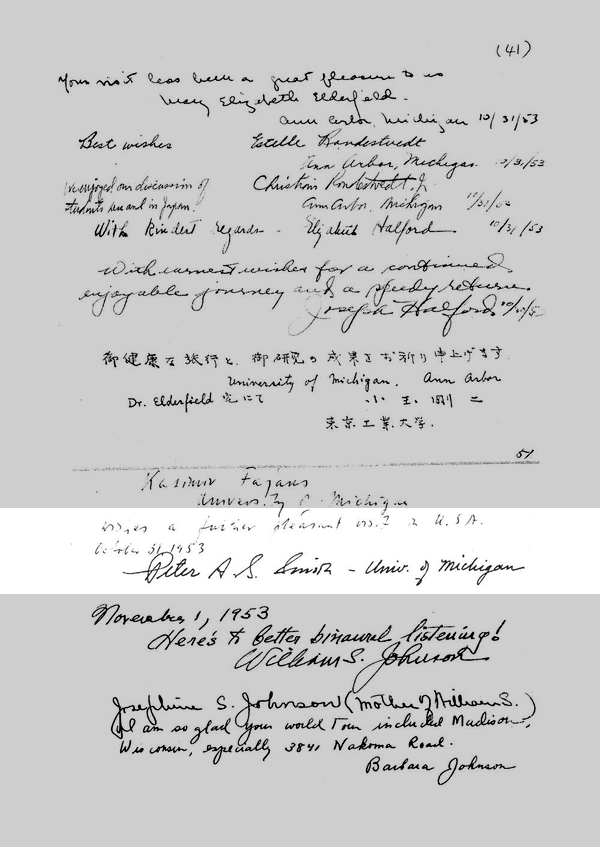 (41)
Your visit has been a great pleasure to us
Mary Elizabeth Elderfield.
Ann Arbor, Michigan 10/31/53
Best wishes Estelle Rondestvedt
Ann Arbor, Michigan 10/31/53
We enjoyed our discussion of Christian Rondestvedt, Jr
students here and in Japan. Ann Arbor, Michigan 10/31/53
With kindest regards - Elizabeth Halford 10/31/53
With earnest wishes for a continued
enjoyable journey and a speedy return.
Joseph Halford 10/31/53
御健康な旅行と、御研究の成果をお祈り申上げます.
University of Michigan. Ann Arbor
Dr. Elderfield 宅にて 小玉剛二
東京工業大学.
51
Kasimir Fajans
University of Michigan
wishes a further pleasant visit in U.S.A.
October 31, 1953
Peter A. S. Smith - Univ. of Michigan
November 1, 1953
Here's to better binaural listening!
William S. Johnson
Josephine S. Johnson (Mother of William S.)
I am so glad your world tour included Madison,
Wisconsin, especially 3841 Nakoma Road.
Barbara Johnson